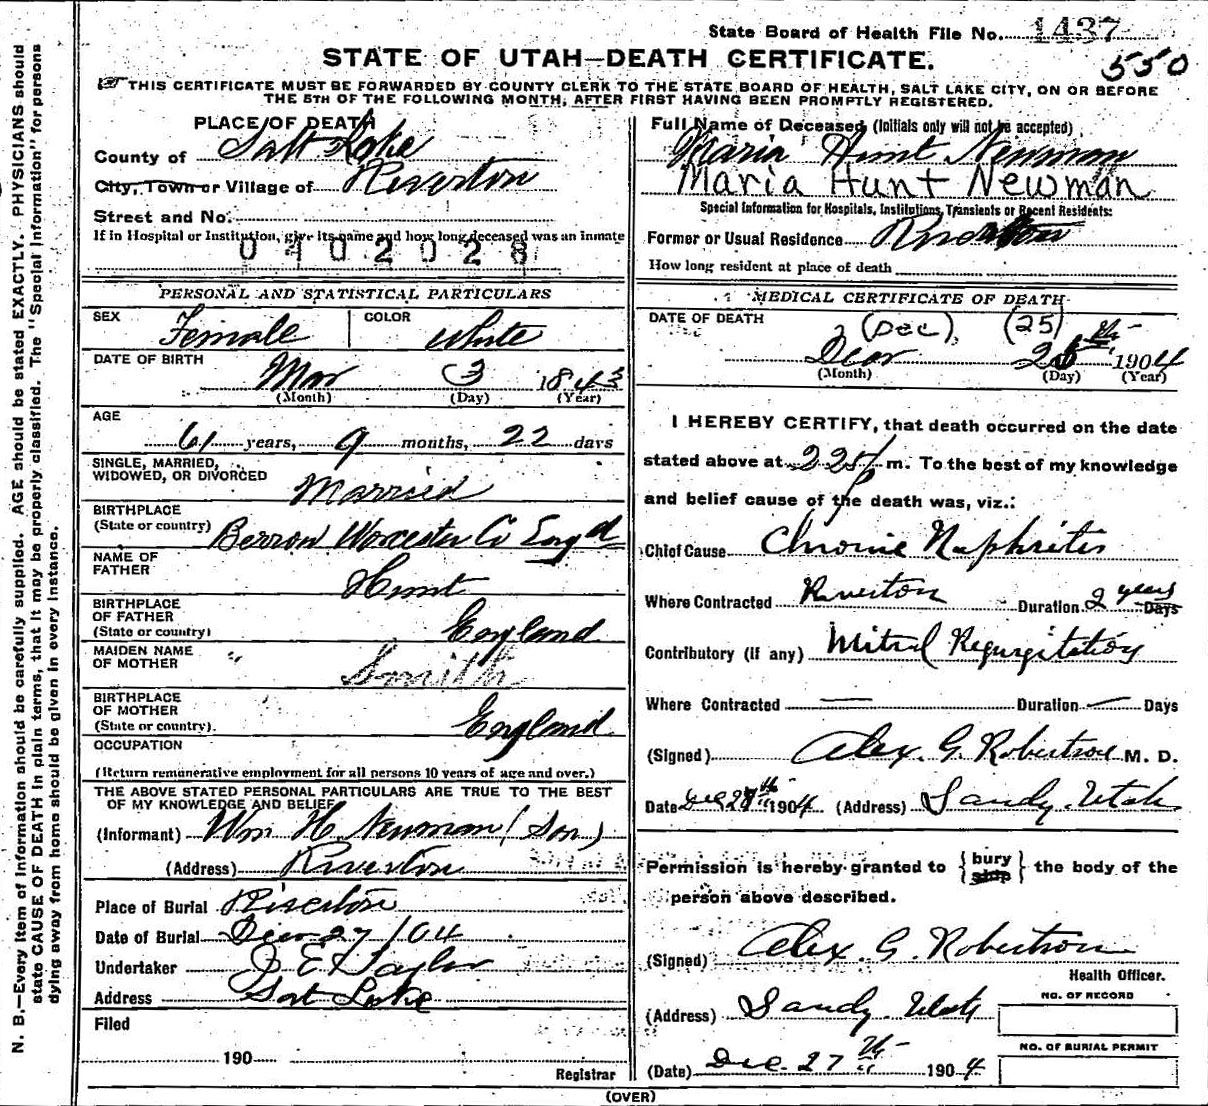 State Board of Health File No. 1437
550
STATE OF UTAH—DEATH CERTIFICATE.
THIS CERTIFICATE MUST BE FORWARDED BY COUNTY CLERK TO THE STATE BOARD OF HEALTH, SALT LAKE CITY, ON OR BEFORE
THE 5TH OF THE FOLLOWING MONTH, AFTER FIRST HAVING BEEN PROMPTLY REGISTERED.
N. B.—Every item of information should be carefully supplied. AGE should be stated EXACTLY. PHYSICIANS should
state CAUSE OF DEATH in plain terms, that it may be properly classified. The "Special Information" for persons
dying away from home should be given in every instance.
PLACE OF DEATH
County of Salt Lake
City, Town or Village of Riverton
Street and No.
If in Hospital or Institution, give its name and how long deceased was an inmate
0402028
PERSONAL AND STATISTICAL PARTICULARS
SEX Female COLOR White
DATE OF BIRTH
Mar 3 1843
(Month) (Day) (Year)
AGE
61 years, 9 months, 22 days
SINGLE, MARRIED,
WIDOWED, OR DIVORCED Married
BIRTHPLACE
(State or country) Berrow Worcester Co Engd
NAME OF
FATHER Hunt
BIRTHPLACE
OF FATHER
(State or country) England
MAIDEN NAME
OF MOTHER " Smith
BIRTHPLACE
OF MOTHER
(State or country). England
OCCUPATION
(Return remunerative employment for all persons 10 years of age and over.)
THE ABOVE STATED PERSONAL PARTICULARS ARE TRUE TO THE BEST
OF MY KNOWLEDGE AND BELIEF
(Informant) Wm H Newman (Son)
(Address) Riverton
Place of Burial Riverton
Date of Burial Dec 27/04
Undertaker J E Taylor
Address Salt Lake
Filed
190
Registrar
Full Name of Deceased (Initials only will not be accepted)
Maria Hunt Newman
Maria Hunt Newman
Special Information for Hospitals, Institutions, Transients or Recent Residents:
Former or Usual Residence Riverton
How long resident at place of death
MEDICAL CERTIFICATE OF DEATH
DATE OF DEATH (Dec), (25)
25th 1904
(Month) (Day) (Year)
I HEREBY CERTIFY, that death occurred on the date
stated above at 225 p m. To the best of my knowledge
and belief cause of the death was, viz.:
Chief Cause Chronic Nephritis
Where Contracted Riverton Duration 2 years Days
Contributory (if any) Mitral Regurgitation
Where Contracted — Duration — Days
(Signed) Alex. G. Robertson M. D.
Date Dec 27th 1904 (Address) Sandy. Utah
Permission is hereby granted to {bury
ship} the body of the
person above described.
(Signed) Alex. G. Robertson
Health Officer.
(Address) Sandy. Utah
NO. OF RECORD
NO. OF BURIAL PERMIT
(Date) Dec. 27th 1904
(OVER)